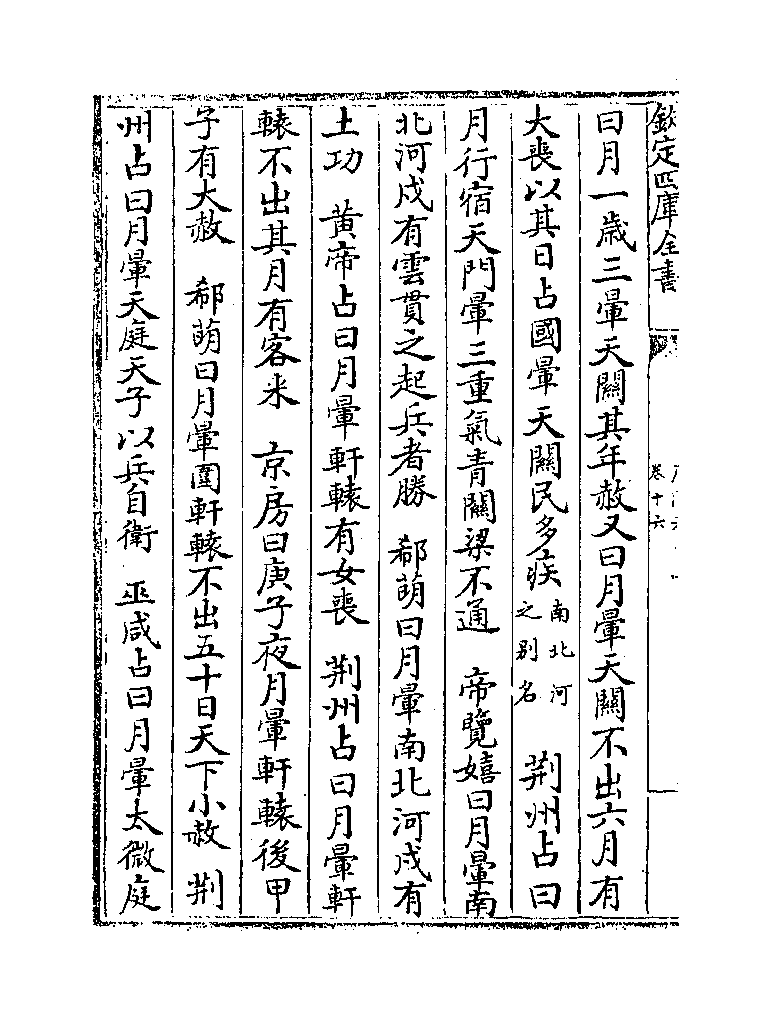 欽定四庫全書
卷十六
曰月一歲三暈天關其年赦又曰月暈天關不出六月有
大喪以其日占國暈天關民多疾南北河之别名 荆州占曰
月行宿天門暈三重氣青關梁不通 帝覽嬉曰月暈南
北河戍有雲貫之起兵者勝 郗萌曰月暈南北河戍有
土功 黄帝占曰月暈軒轅有女喪 荆州占曰月暈軒
轅不出其月有客米 京房曰庚子夜月暈軒轅後甲
子有大赦 郗萌曰月暈圍軒轅不出五十日天下小赦 荆
州占曰月暈天庭天子以兵自衛 巫咸占曰月暈太微庭